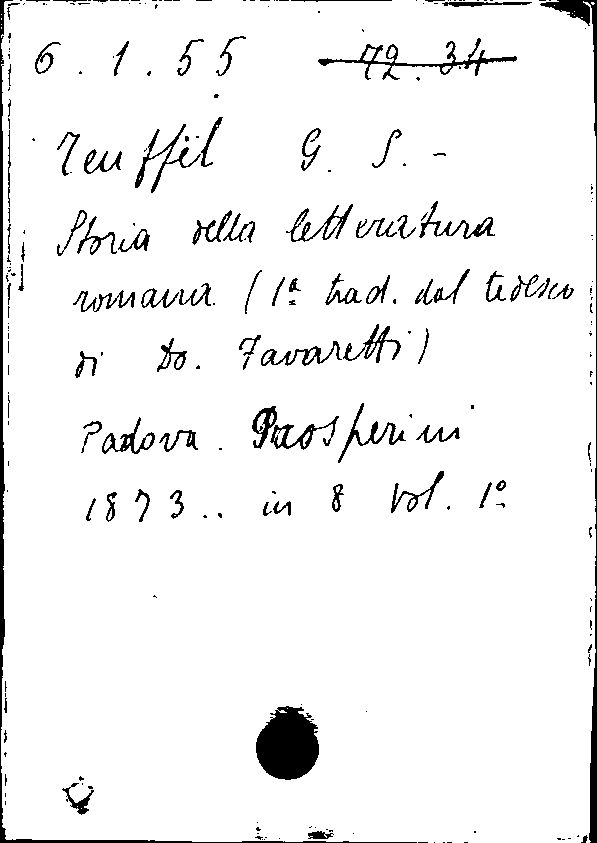 6.1.55 72.34
Teuffel G. S. -
Storia della letteratura
romana (1ª trad. dal tedesco
di Do. Favaretti)
Padova. Prosperini
1873.. in 8 Vol. 1º